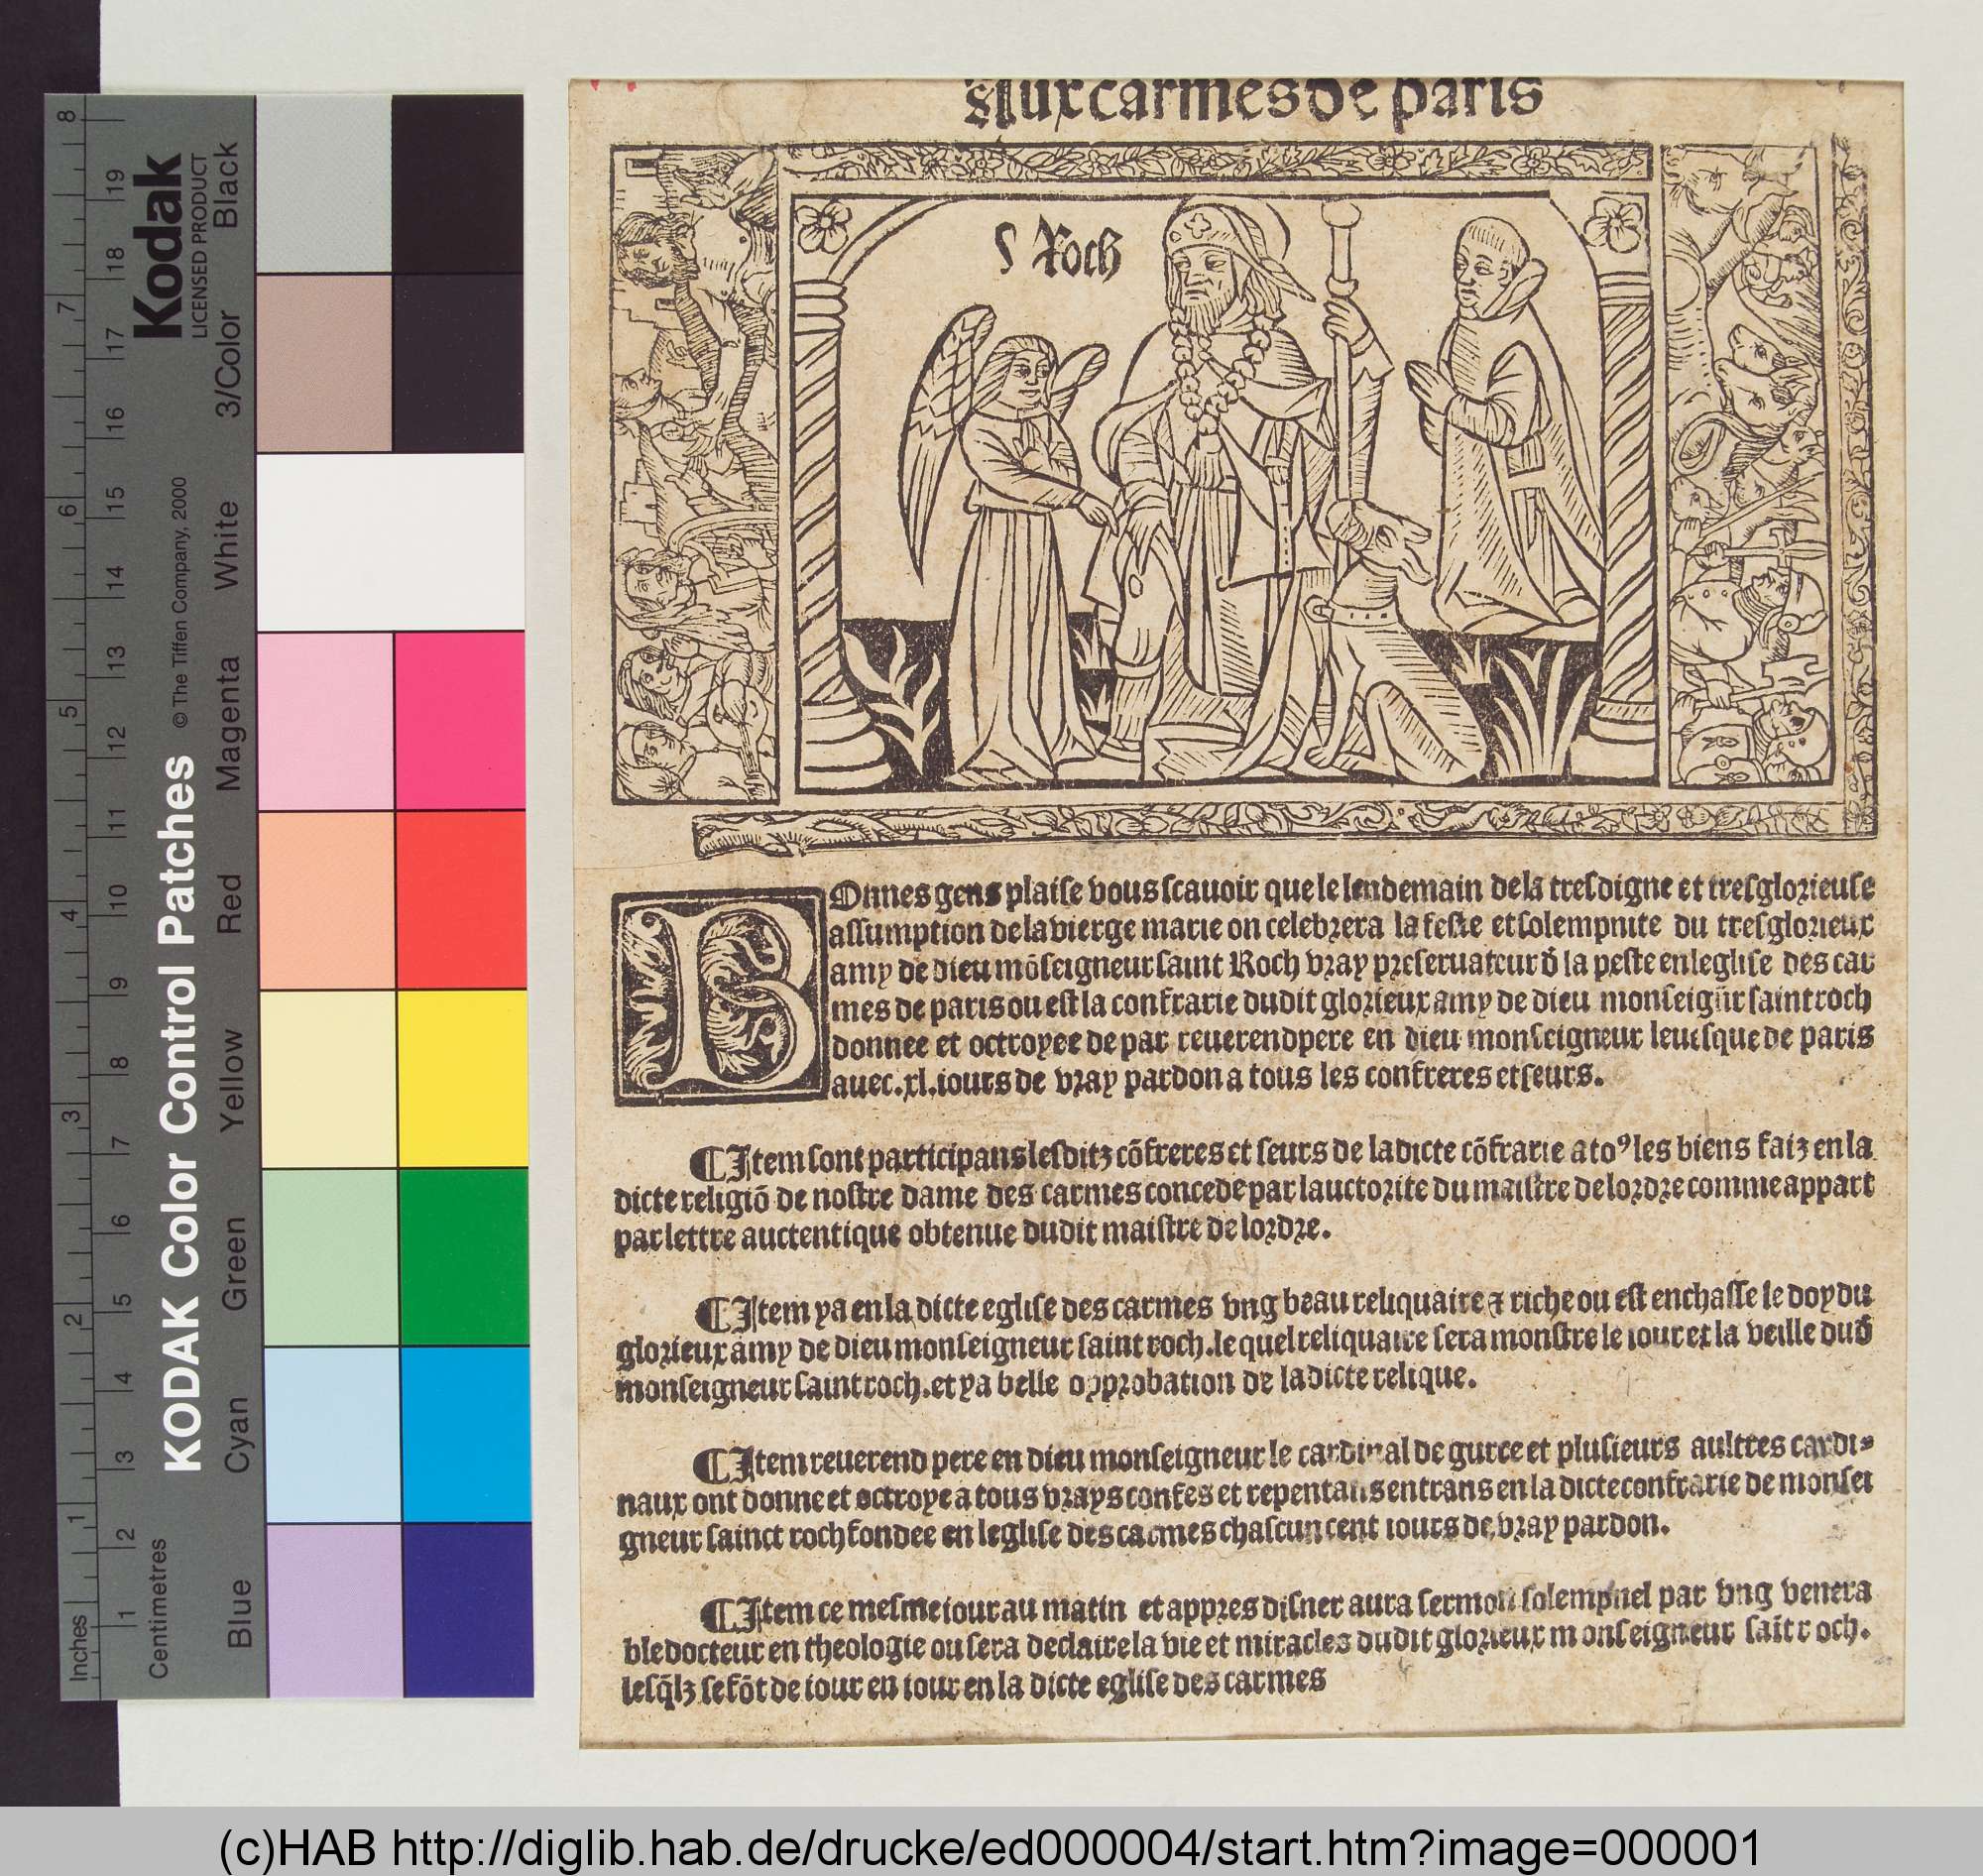 Aux carmes de paris
S Roch
BOnnes gens plaise vous scauoir que le lendemain de la tresdigne et tresglorieuse
assumption de la vierge marie on celebrera la feste et solempnite du tresglorieux
amy de dieu mōseigneur saint Roch vray preseruateur d̄ la peste en leglise des car
mes de paris ou est la confrarie dudit glorieux amy de dieu monseign̄r saint roch
donnee et octroyee de par reuerend pere en dieu monseigneur leuesque de paris
auec .xl. iours de vray pardon a tous les confreres et seurs.
¶ Item sont participans lesditz cōfreres et seurs de la dicte cōfrarie a toꝰ les biens faiz en la
dicte religiō de nostre dame des carmes concede par lauctorite du maistre de lordre comme appart
par lettre auctentique obtenue dudit maistre de lordre.
¶ Item y a en la dicte eglise des carmes vng beau reliquaire ⁊ riche ou est enchasse le doy du
glorieux amy de dieu monseigneur saint roch. le quel reliquaire sera monstre le iour et la veille dud̄
monseigneur saint roch. et y a belle opprobation de la dicte relique.
¶ Item reuerend pere en dieu monseigneur le cardinal de gurce et plusieurs aultres cardi-
naux ont donne et octroye a tous vrays confes et repentans entrans en la dicte confrarie de monsei
gneur sainct roch fondee en leglise des carmes chascun cent iours de vray pardon.
¶ Item ce mesme iour au matin et appres disner aura sermon solempnel par vng venera
ble docteur en theologie ou sera declaire la vie et miracles dudit glorieux monseigneur saīt roch.
lesq̄lz se fōt de iour en iour en la dicte eglise des carmes
KODAK Color Control Patches
© The Tiffen Company, 2000
Kodak
LICENSED PRODUCT
Inches 1 2 3 4 5 6 7 8
Centimetres 1 2 3 4 5 6 7 8 9 10 11 12 13 14 15 16 17 18 19
Blue Cyan Green Yellow Red Magenta White 3/Color Black
(c)HAB http://diglib.hab.de/drucke/ed000004/start.htm?image=000001